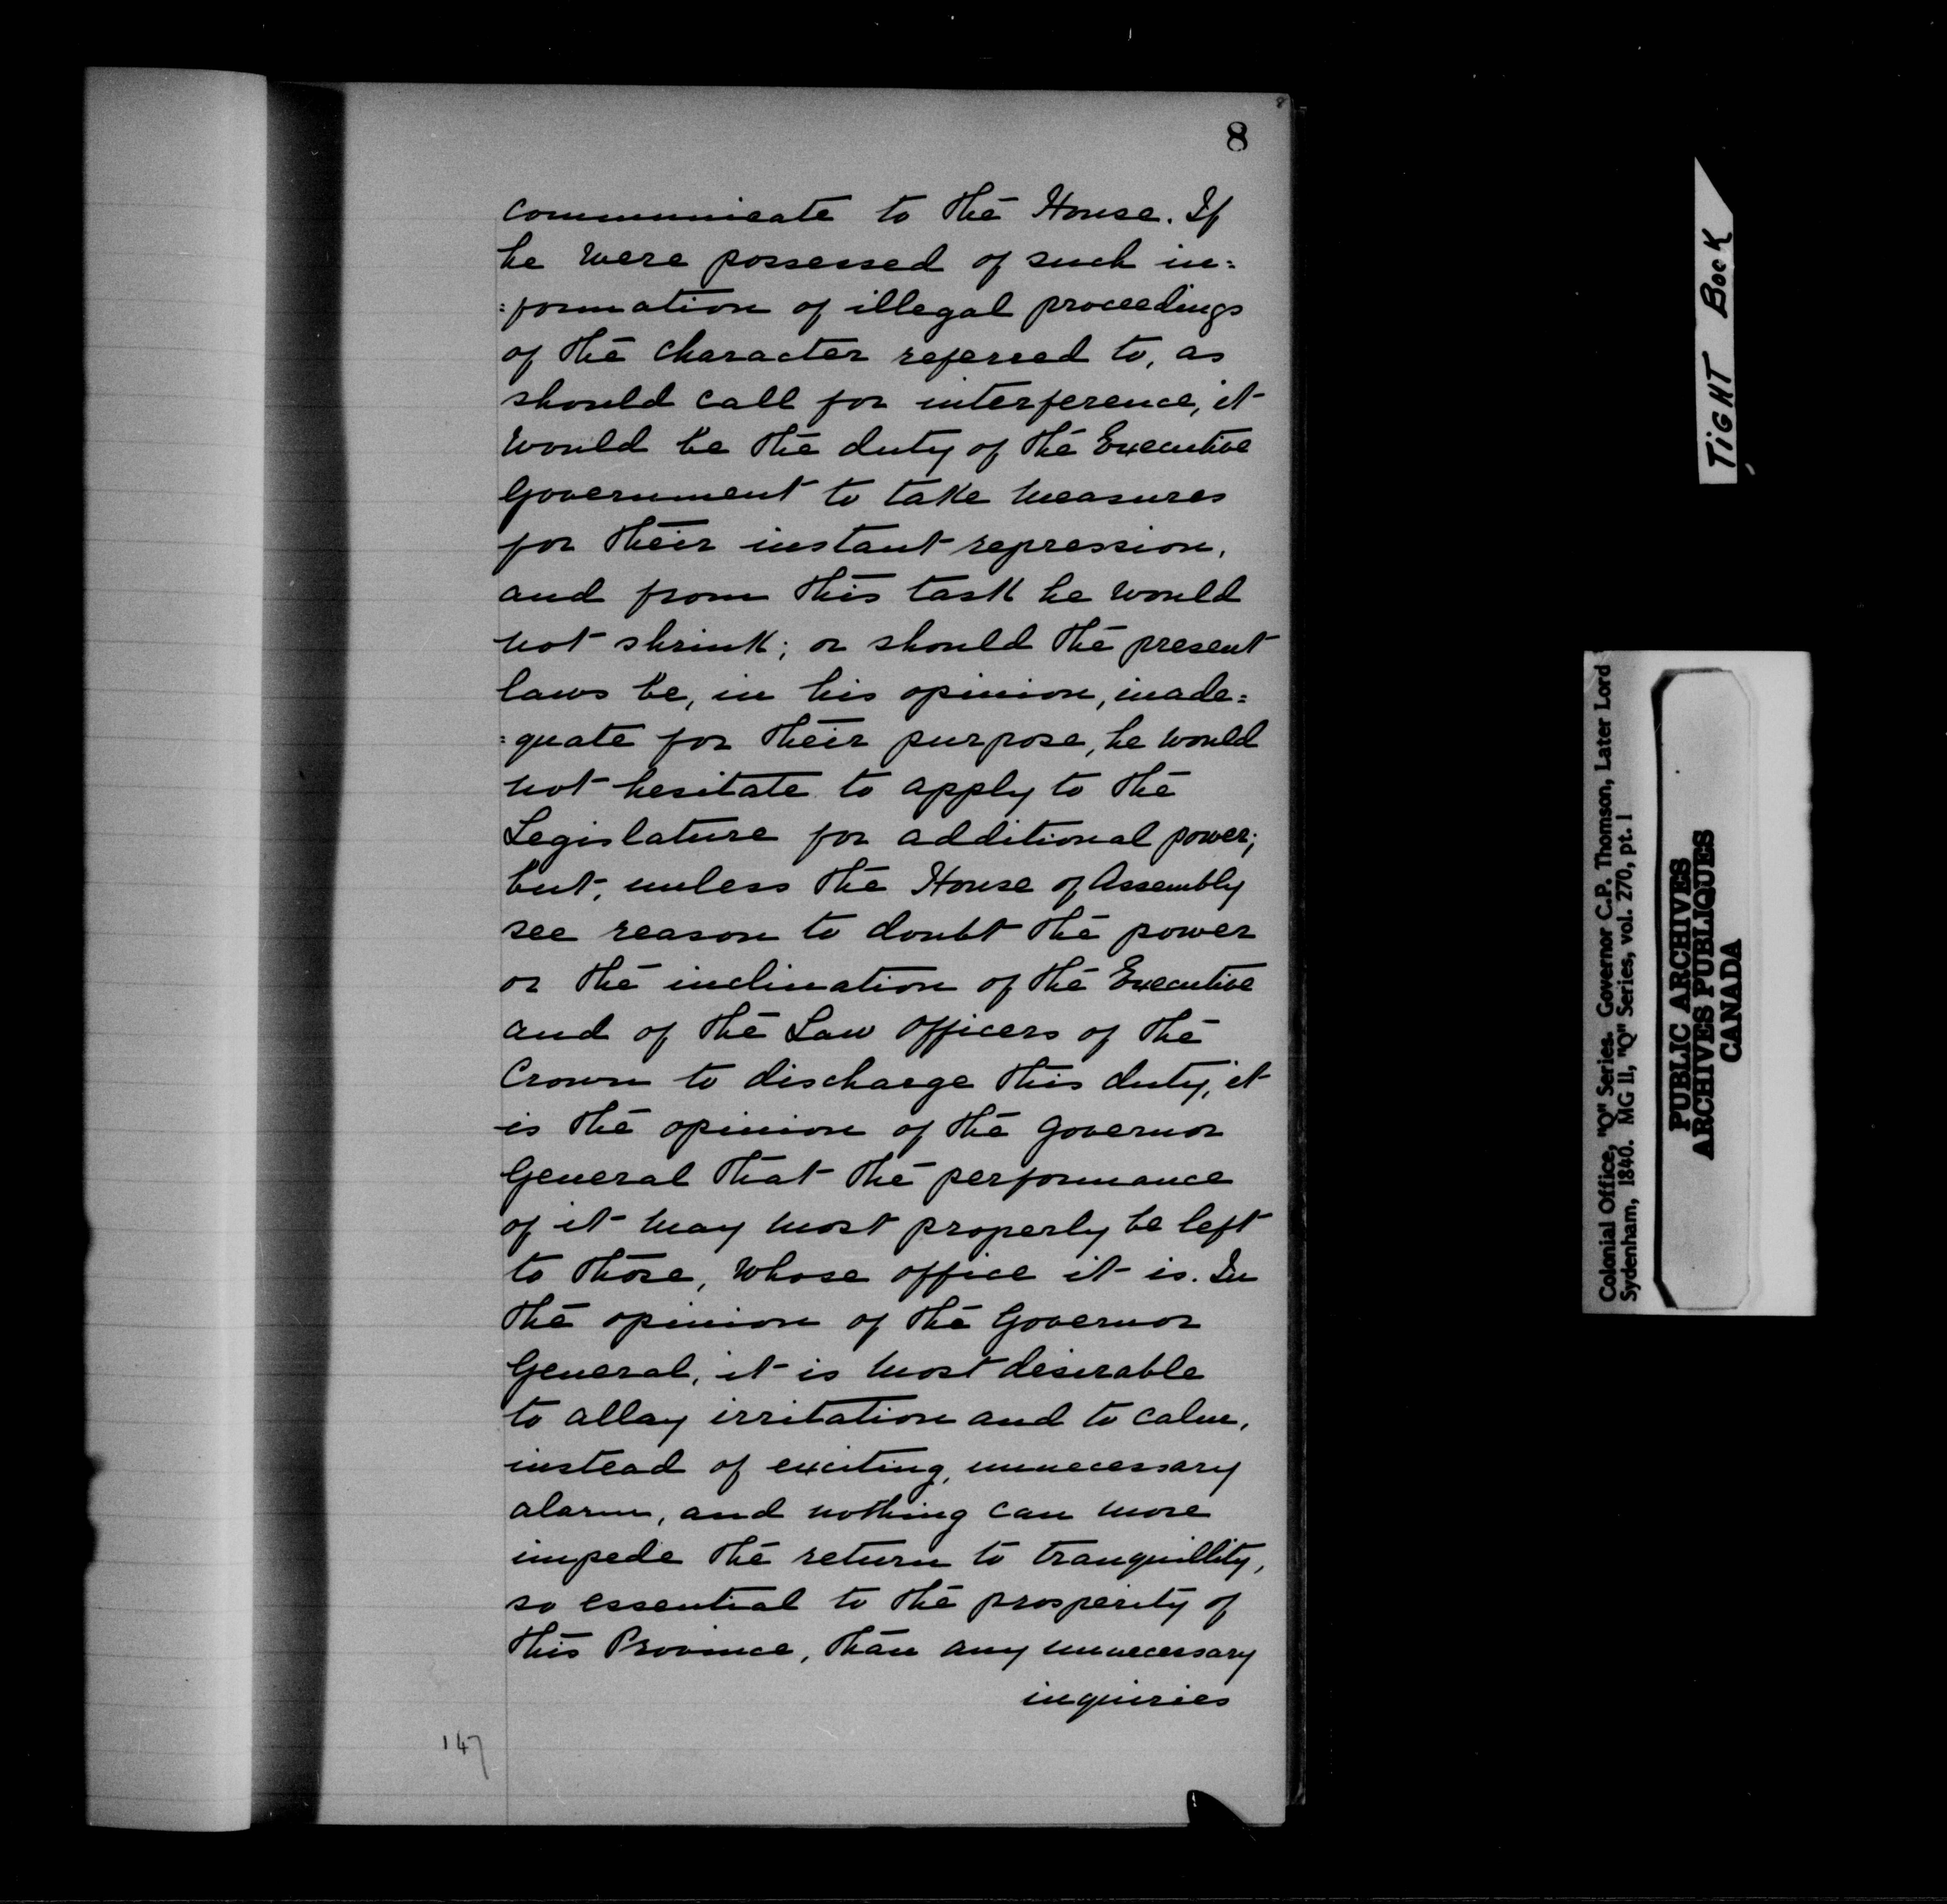 8
8
communicate to the House. If
he were possessed of such in=
=formation of illegal proceedings
of the character referred to, as
should call for interference, it
would be the duty of the Executive
Government to take measures
for their instant repression,
and from this task he would
not shrink; or should the present
laws be, in his opinion, inade=
=quate for their purpose, he would
not hesitate to apply to the
Legislature for additional power;
but, unless the House of Assembly
see reason to doubt the power
or the inclination of the Executive
and of the Law Officers of the
Crown to discharge this duty, it
is the opinion of the Governor
General that the performance
of it may most properly be left
to those, whose office it is. In
the opinion of the Governor
General, it is most desirable
to allay irritation and to calm,
instead of exciting, unnecessary
alarm, and nothing can more
impede the return to tranquillity,
so essential to the prosperity of
this Province, than any unnecessary
inquiries
147
TIGHT BOOK
Colonial Office, "Q" Series. Governor C.P. Thomson, Later Lord
Sydenham, 1840. MG 11, "Q" Series, vol. 270, pt. 1
PUBLIC ARCHIVES
ARCHIVES PUBLIQUES
CANADA